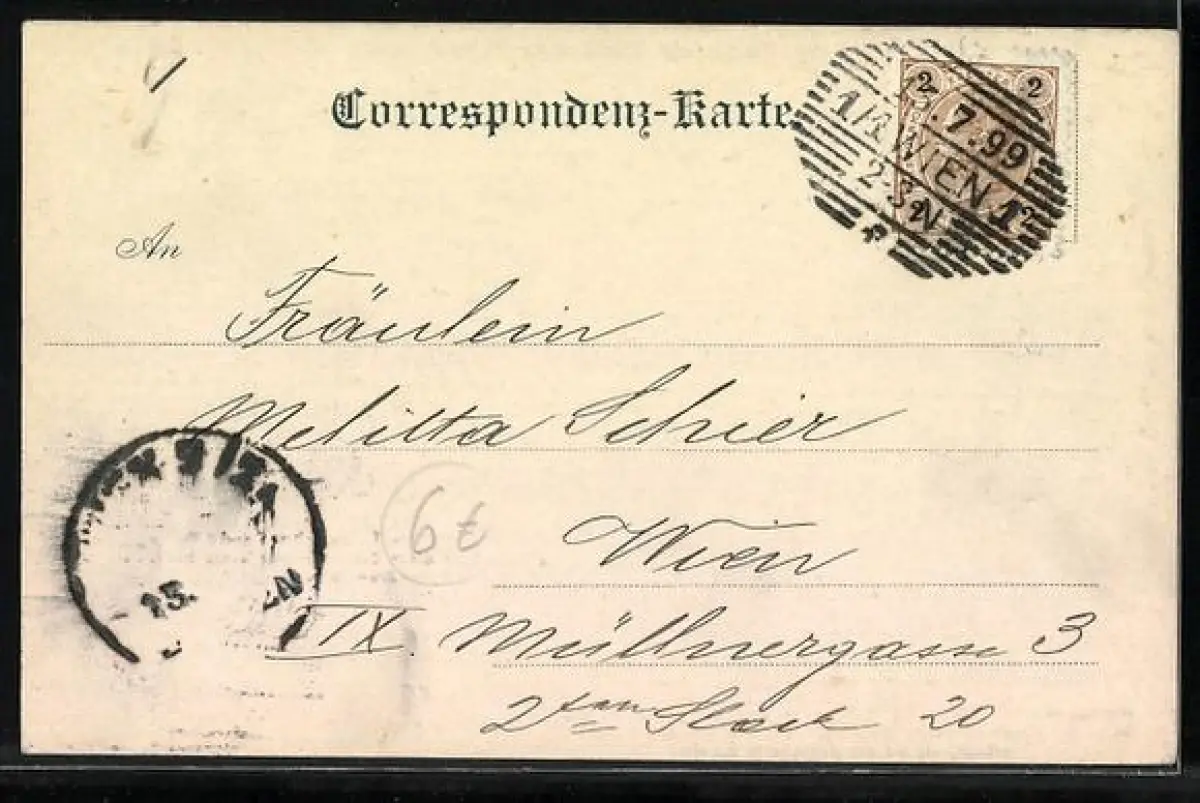 Correspondenz-Karte
2 2
.7.99
1/1 WIEN 1
2-3N
2 2
An
Fräulein
Melitta Schier
Wien
IX Müllnergasse 3
2ten Stock 20
15. N
6